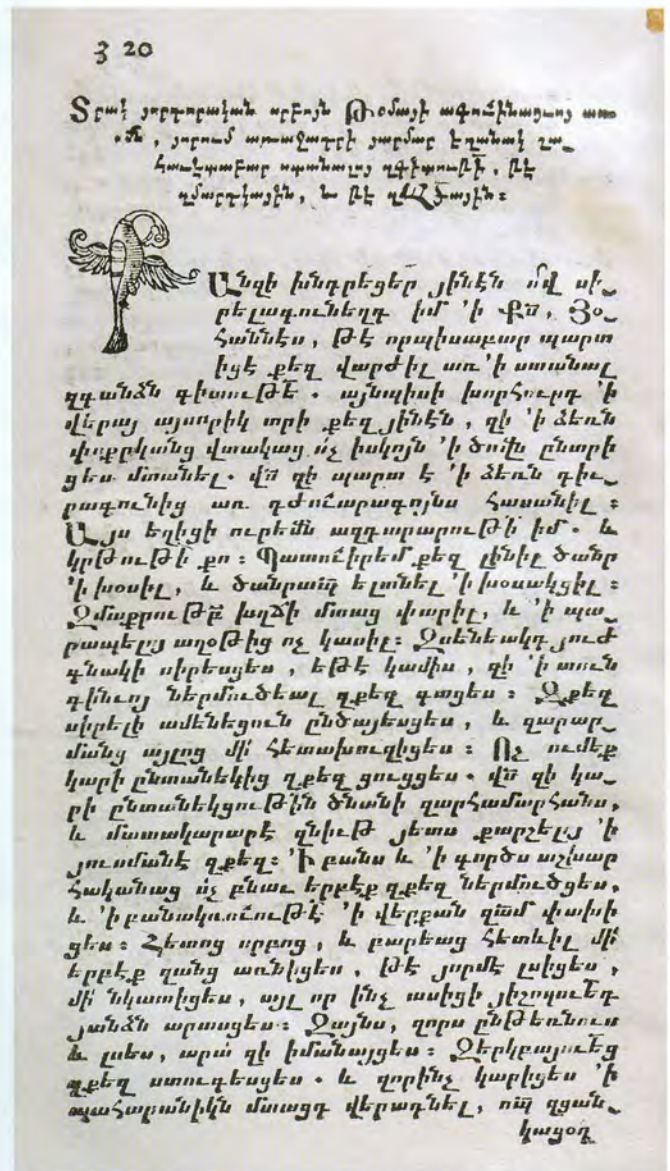 ՅՁ 20
Տրակ յորդորական սրբոյն Թօմայի ագուինացւոյ առ
, յորում առաջադրի յարմար եղանակ
ստանալոյ զգիտութի, թէ
զմարդկային, և թէ զԱծային։
Անզի խնդրեցեր յինէն ով սի֊
րելագունեղդ իմ ՚ի Քս, Յօ֊
հաննէս, թէ որպիսաբար պարտ
իցէ քեզ վարժիլ առ ՚ի ստանալ
զգանձն գիտութե. այնպիսի խորհուրդ ՚ի
վերայ այսորիկ տրի քեզ յինէն, զի ՚ի ձեռն
փոքրկանց վտակաց ոչ իսկոյն ՚ի ծովն ընտրի
ցես մտանել. վս զի պարտ է ՚ի ձեռն դիւ֊
րագունից առ դժուարագոյնս հասանիլ։
Այս եղիցի ուրեմն ազդարարութի իմ. և
կրթութի քո։ Պատուիրեմ քեզ լինիլ ծանր
՚ի խօսիլ, և ծանրապ ելանել ՚ի խօսակցիլ։
Զմաքրութբ խղճի մտաց փարիլ, և ՚ի պա֊
րապելոյ աղօթից ոչ կասիլ։ Զսենեակդ յուժ
գնակի սիրեսցես, եթէ կամիս, զի ՚ի տուն
գինւոյ ներմուծեալ զքեզ գոցես։ Զքեզ
սիրելի ամենեցուն ընծայեսցես, և զարար֊
մանց այլոց մի հետախուզիցես։ Ոչ ումեք
կարի ընտանեկից զքեզ ցուցցես. վս զի կա֊
րի ընտանեկցութին ծնանի զարհամարհանս,
և մատակարարէ զնիւթ յետս քարշելոյ ՚ի
յուսմանէ զքեզ։ ՚Ի բանս և ՚ի գործս աշխար
հականաց ոչ բնաւ երբէք զքեզ ներմուծցես,
և ՚ի բանակռուութէ ՚ի վերքան զամ փախի
ցես։ Հետոց սրբոց, և բարեաց հետևիլ մի
երբէք զանց առնիցես, թէ յորմէ լսիցես,
մի նկատիցես, այլ որ ինչ ասիցի յիշողուեդ
յանձն արասցես։ Զայնս, զորս ընթեռնուս
և լսես, արա զի իմանայցես։ Զերկբայուեց
զքեզ ստուգեսցես. և զորինչ կարիցես ՚ի
պահարանիկն մտացդ վերադնել, որպ զցան֊
կացօղ